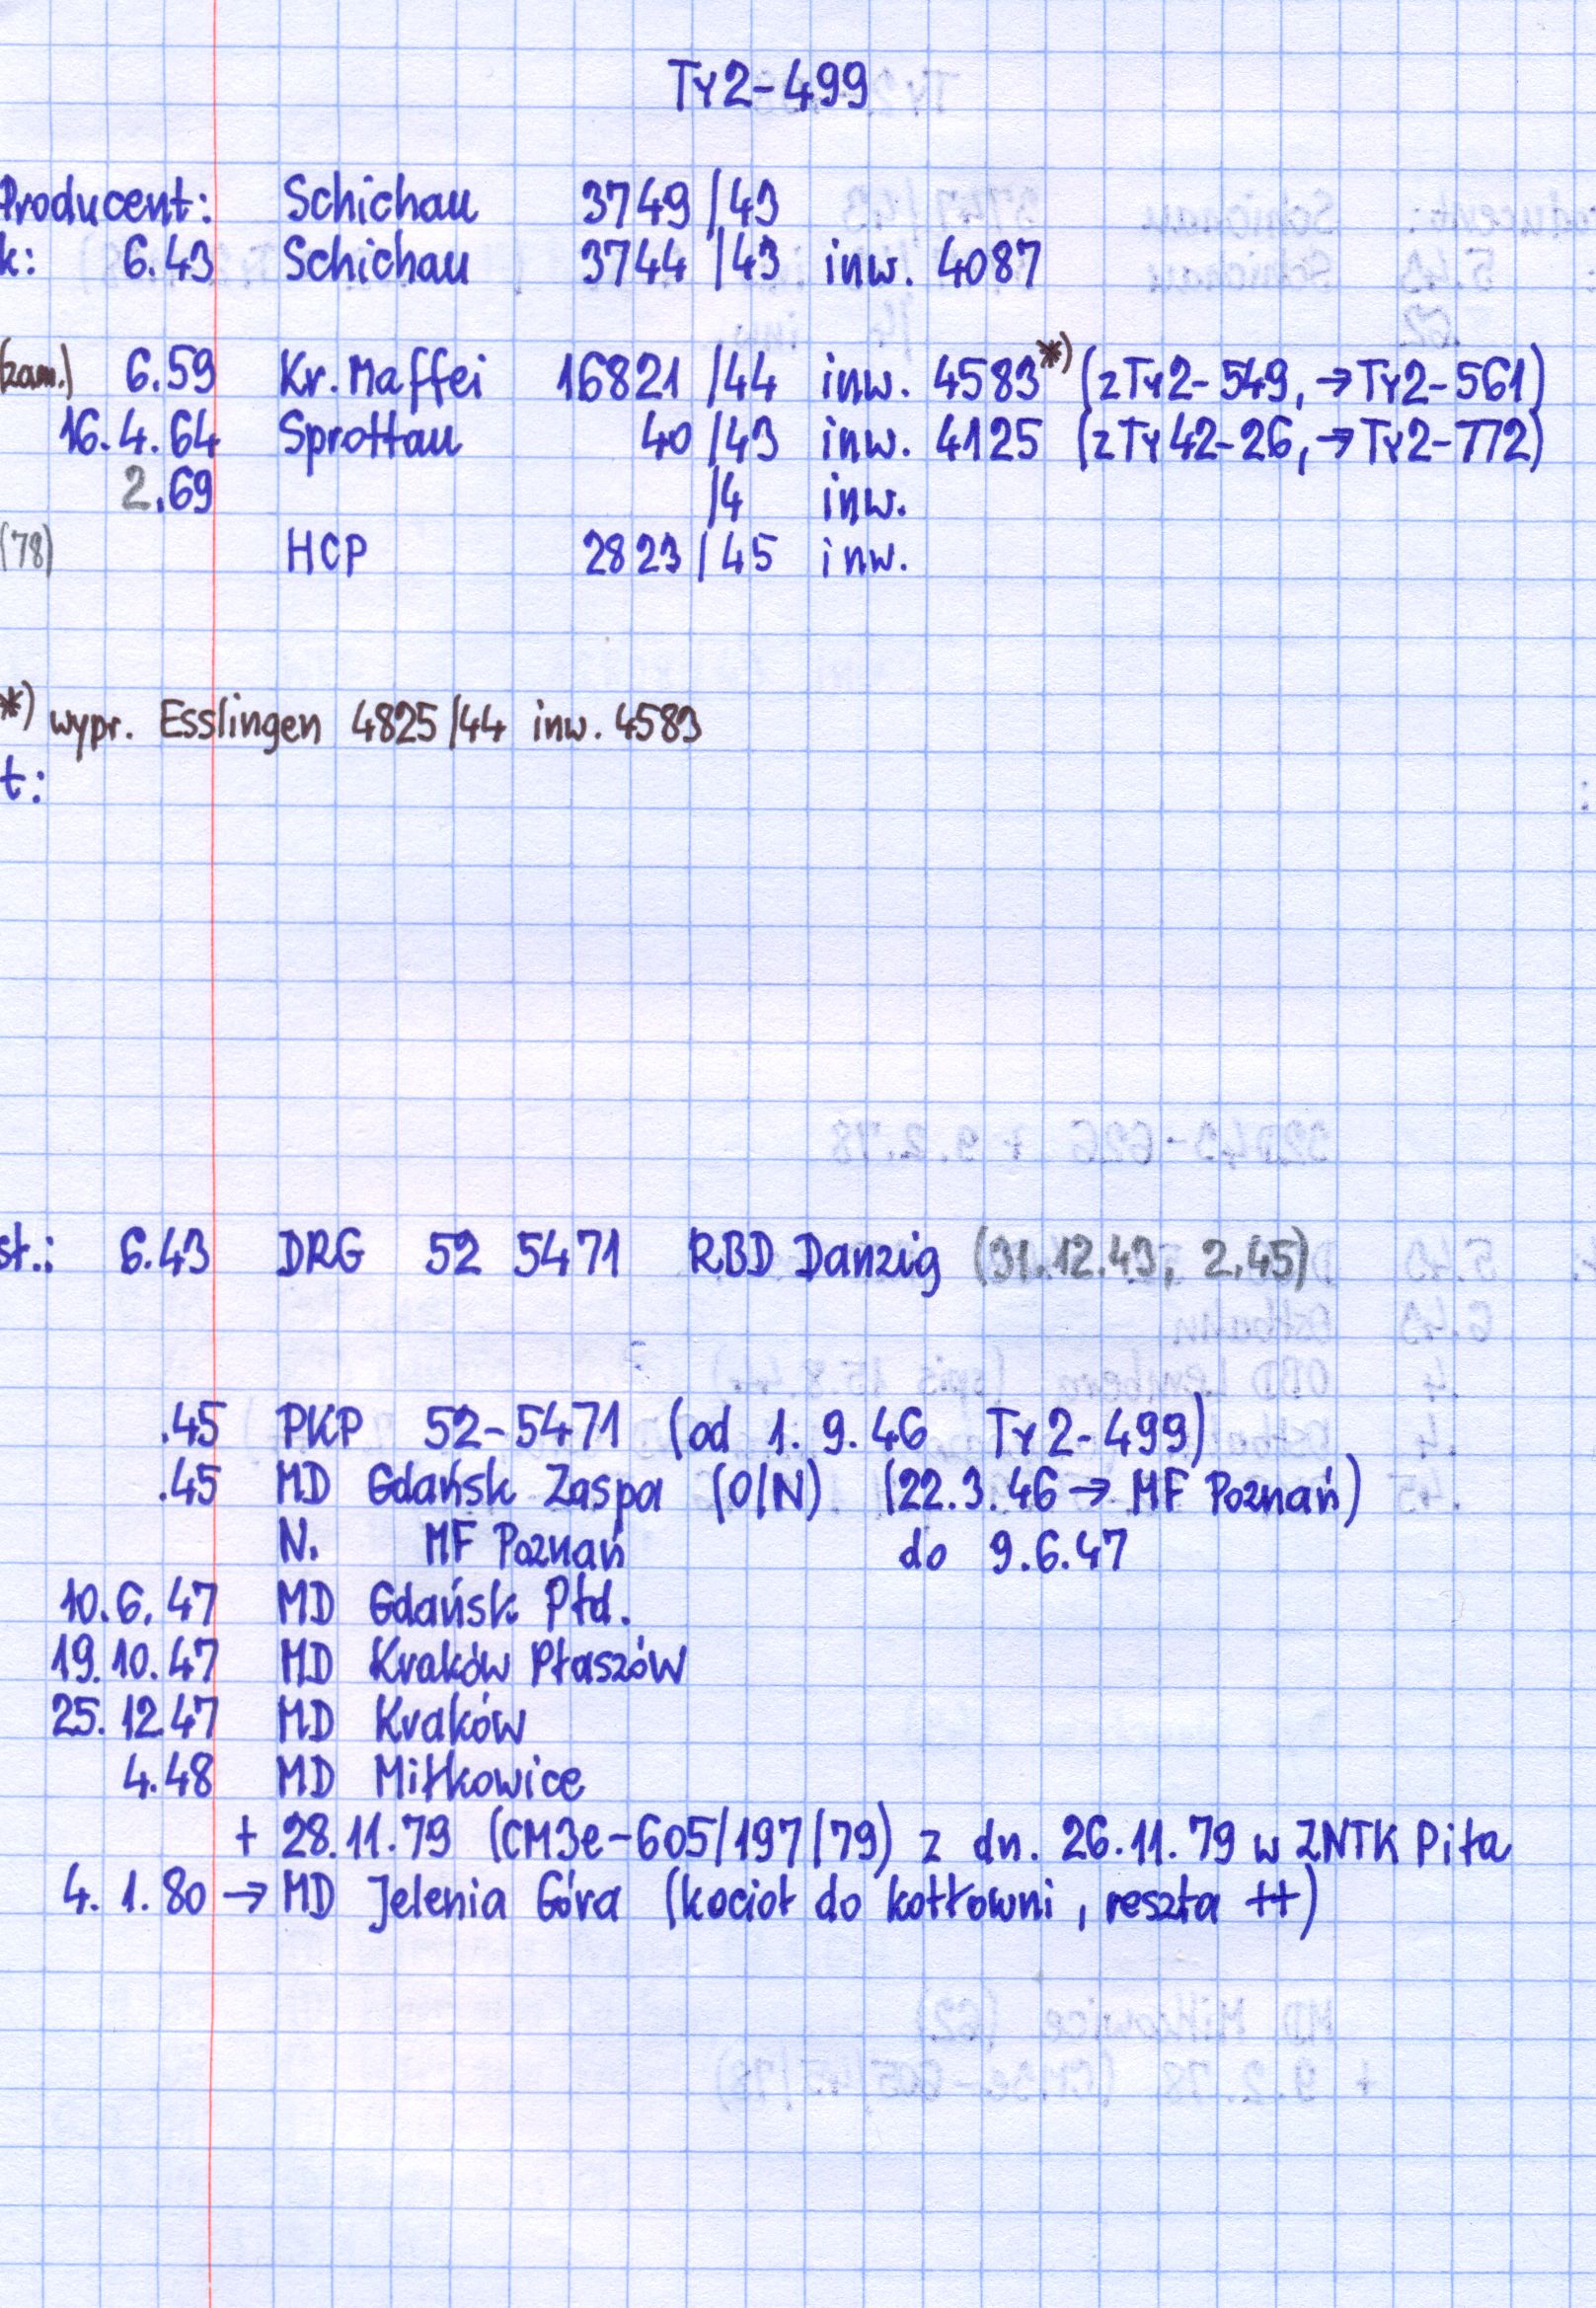 Ty2-499
Producent: Schichau 3749/43
k: 6.43 Schichau 3744/43 inw. 4087
(zam.) 6.59 Kr. Maffei 16821/44 inw. 4583*) (z Ty2-549, → Ty2-561)
16.4.64 Sprottau 40/43 inw. 4125 (z Ty42-26, → Ty2-772)
2.69 /4 inw.
(78) HCP 2823/45 inw.
*) wypr. Esslingen 4825/44 inw. 4583
t:
st.: 6.43 DRG 52 5471 RBD Danzig (31.12.43, 2.45)
.45 PKP 52-5471 (od 1.9.46 Ty2-499)
.45 MD Gdańsk Zaspa (O/N) (22.3.46 → MF Poznań)
N. MF Poznań do 9.6.47
10.6.47 MD Gdańsk Płd.
19.10.47 MD Kraków Płaszów
25.12.47 MD Kraków
4.48 MD Miłkowice
+ 28.11.79 (CM3e-605/197/79) z dn. 26.11.79 w ZNTK Piła
4.1.80 → MD Jelenia Góra (kocioł do kotłowni, reszta ++)